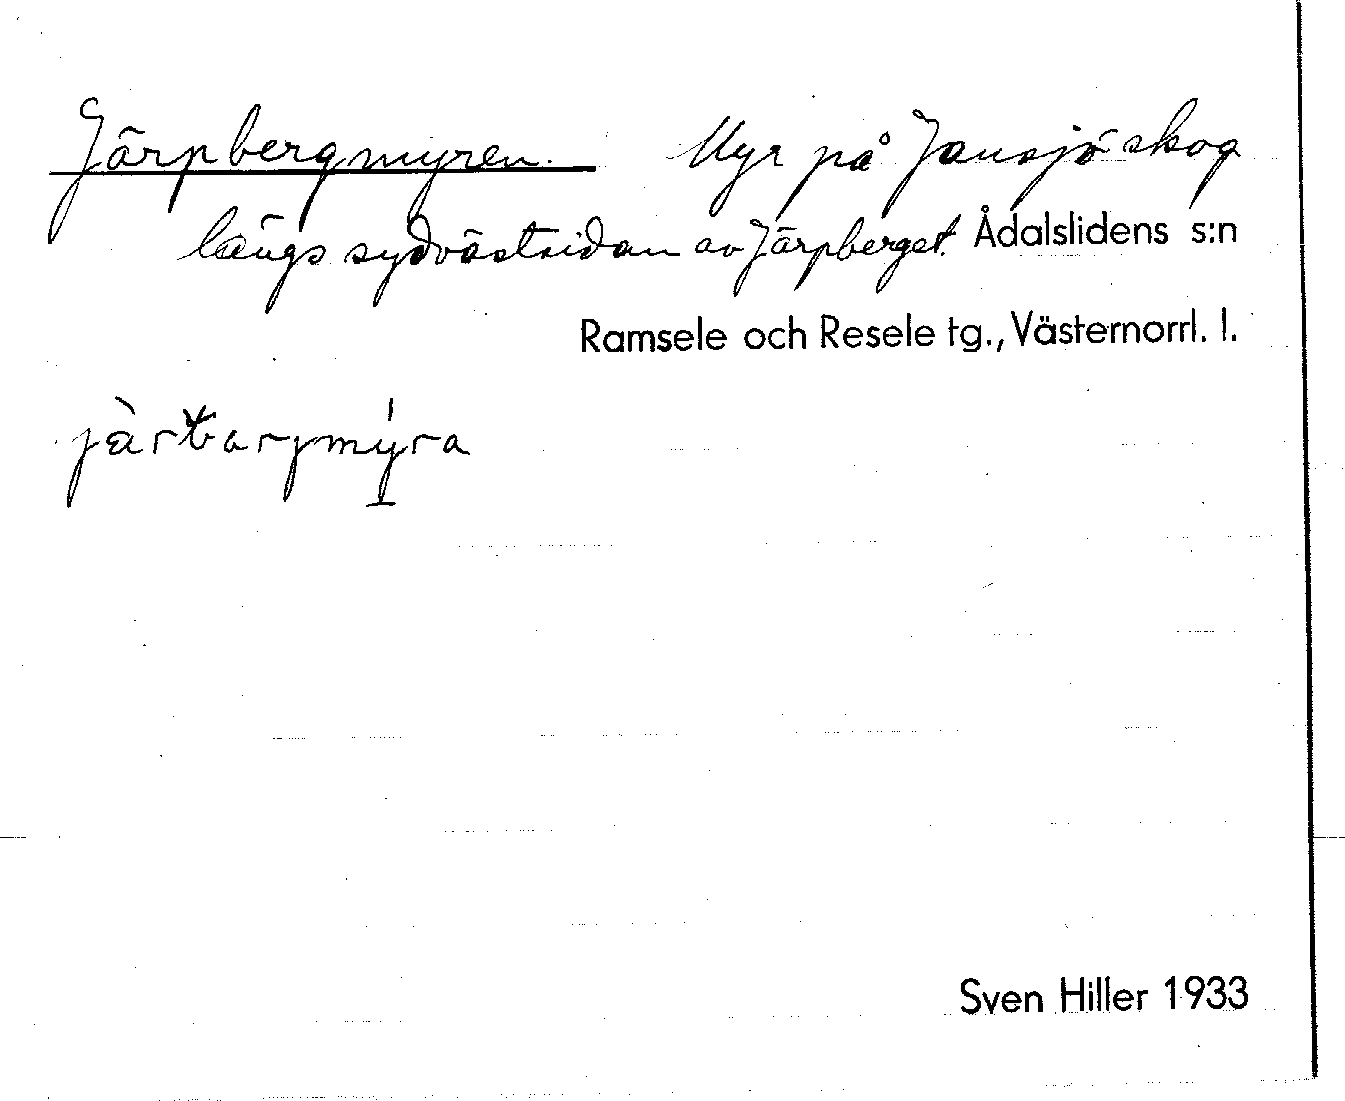 Järpbergmyren. Myr på Jansjö skog
längs sydvästsidan av Järpberget. Ådalslidens s:n
Ramsele och Resele tg., Västernorrl. l.
Sven Hiller 1933